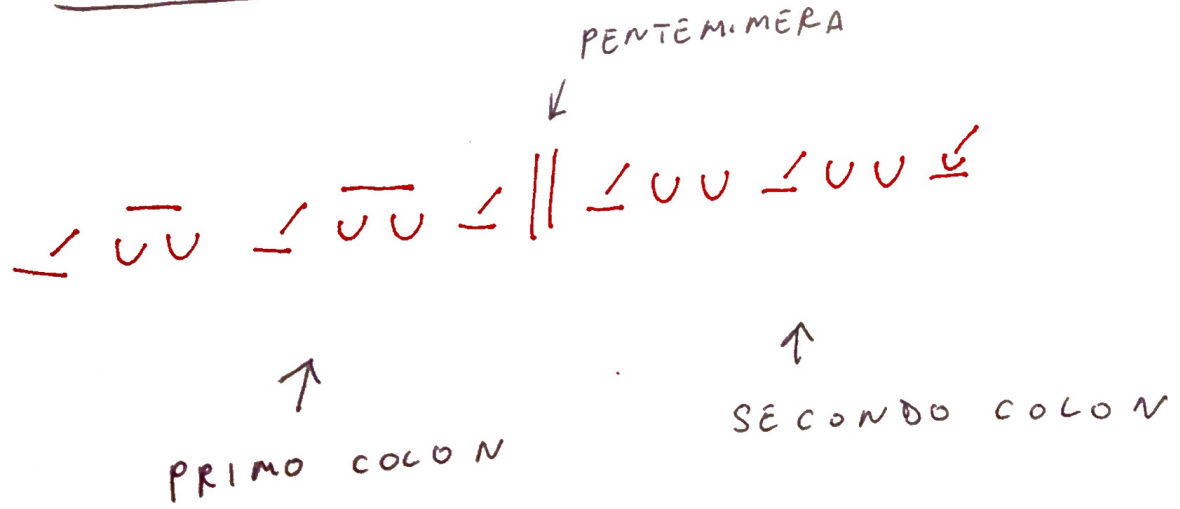 PENTEMIMERA
PRIMO COLON
SECONDO COLON